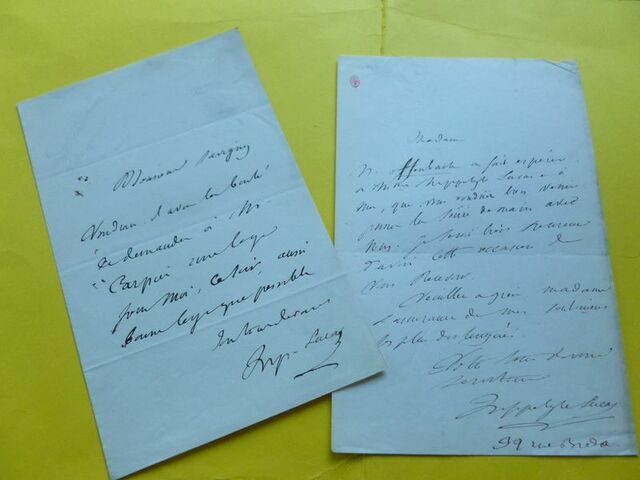 Monsieur Savigny
Voudrait il avoir la bonté
de demander à M.
Carpier une loge
pour moi, ce soir, aussi
bonne loge que possible
Hyp. Lucas
Madame
M. Offenbach a fait espérer
à Mme Hippolyte Lucas et à
moi, que vous voudriez bien venir
passer la soirée de demain avec
nous. je serai très heureux
d'avoir cette occasion de
vous recevoir.
Veuillez agréer madame
l'assurance de mes sentiments
les plus distingués.
Votre tout dévoué
serviteur
Hippolyte Lucas
99 rue Breda